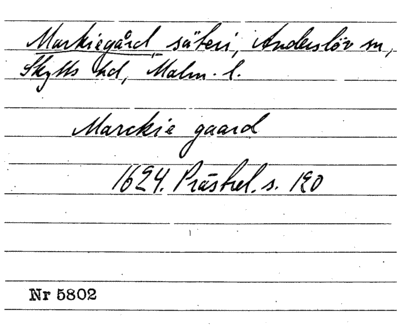 Markiegård säteri, Anderslöv sn,
Skytts hd, Malm. l.
Marckie gaard
1624. Prästrel. s. 120
Nr 5802